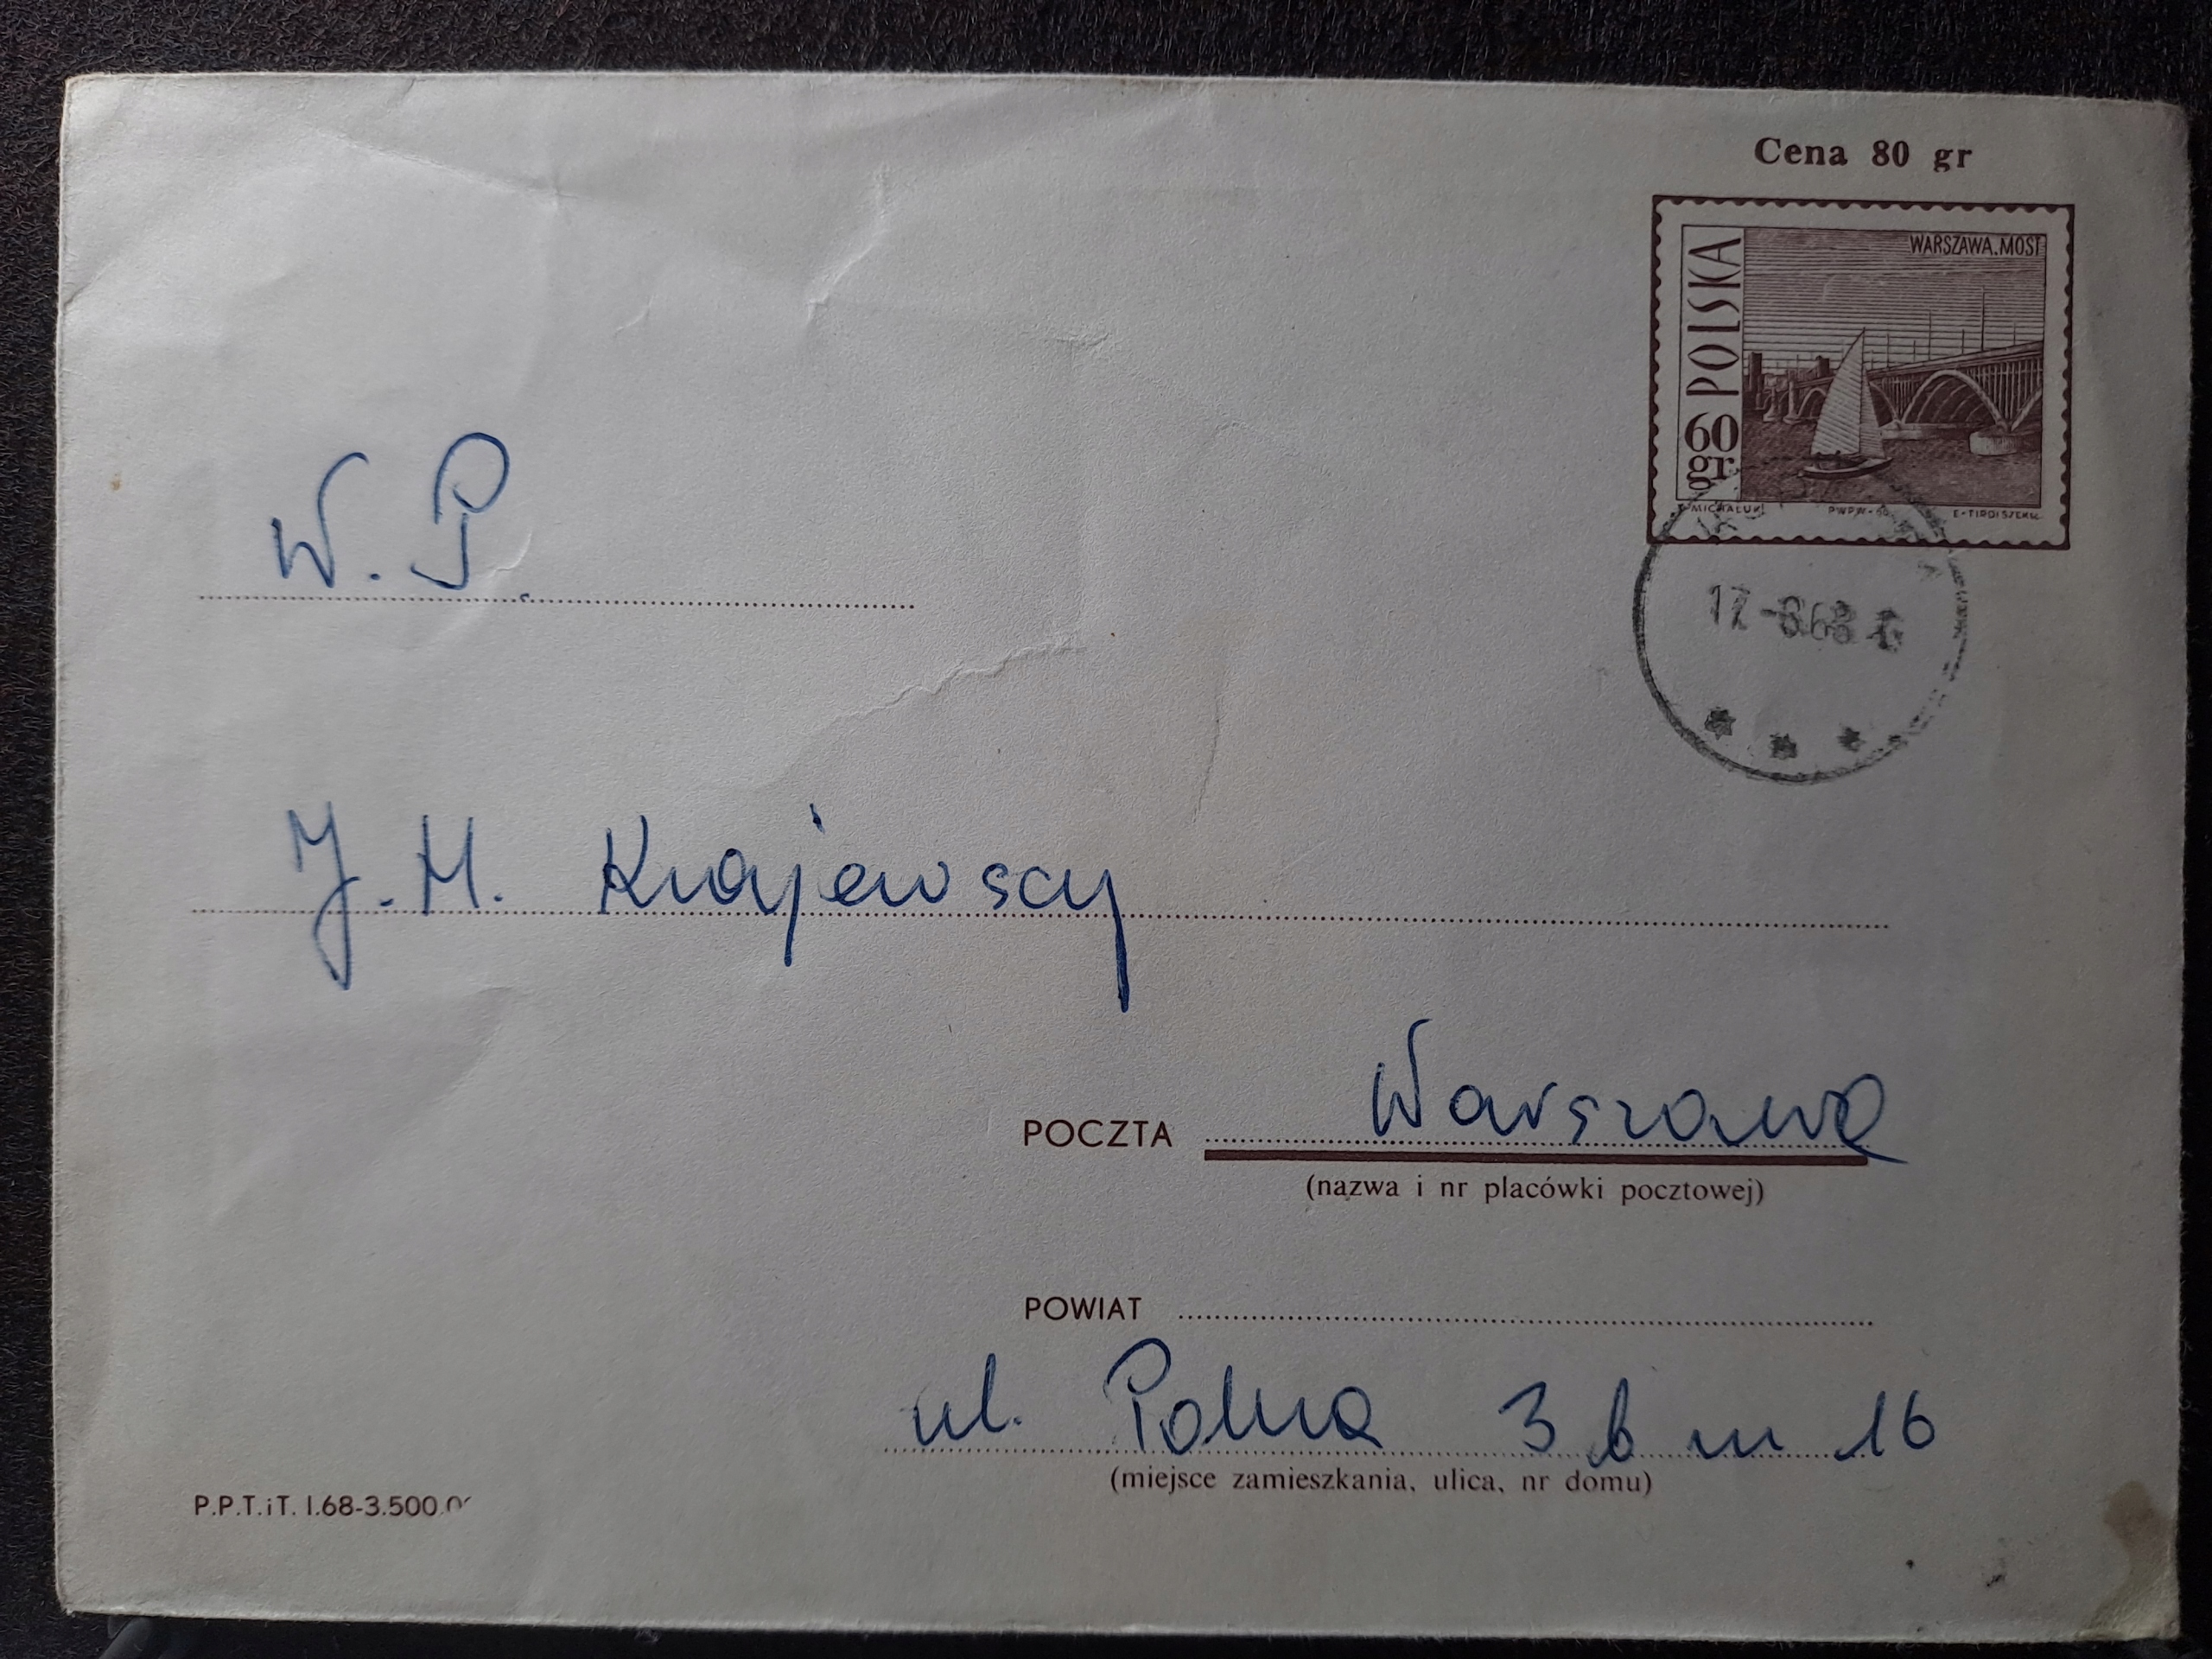 Cena 80 gr
WARSZAWA.MOST
POLSKA
60 gr
MICHALUK PWPW
W. P.
J. H. Krajewscy
POCZTA Warszawa
(nazwa i nr placówki pocztowej)
POWIAT
ul. Polna 3 b m 16
(miejsce zamieszkania, ulica, nr domu)
P.P.T.iT. I.68-3.500.